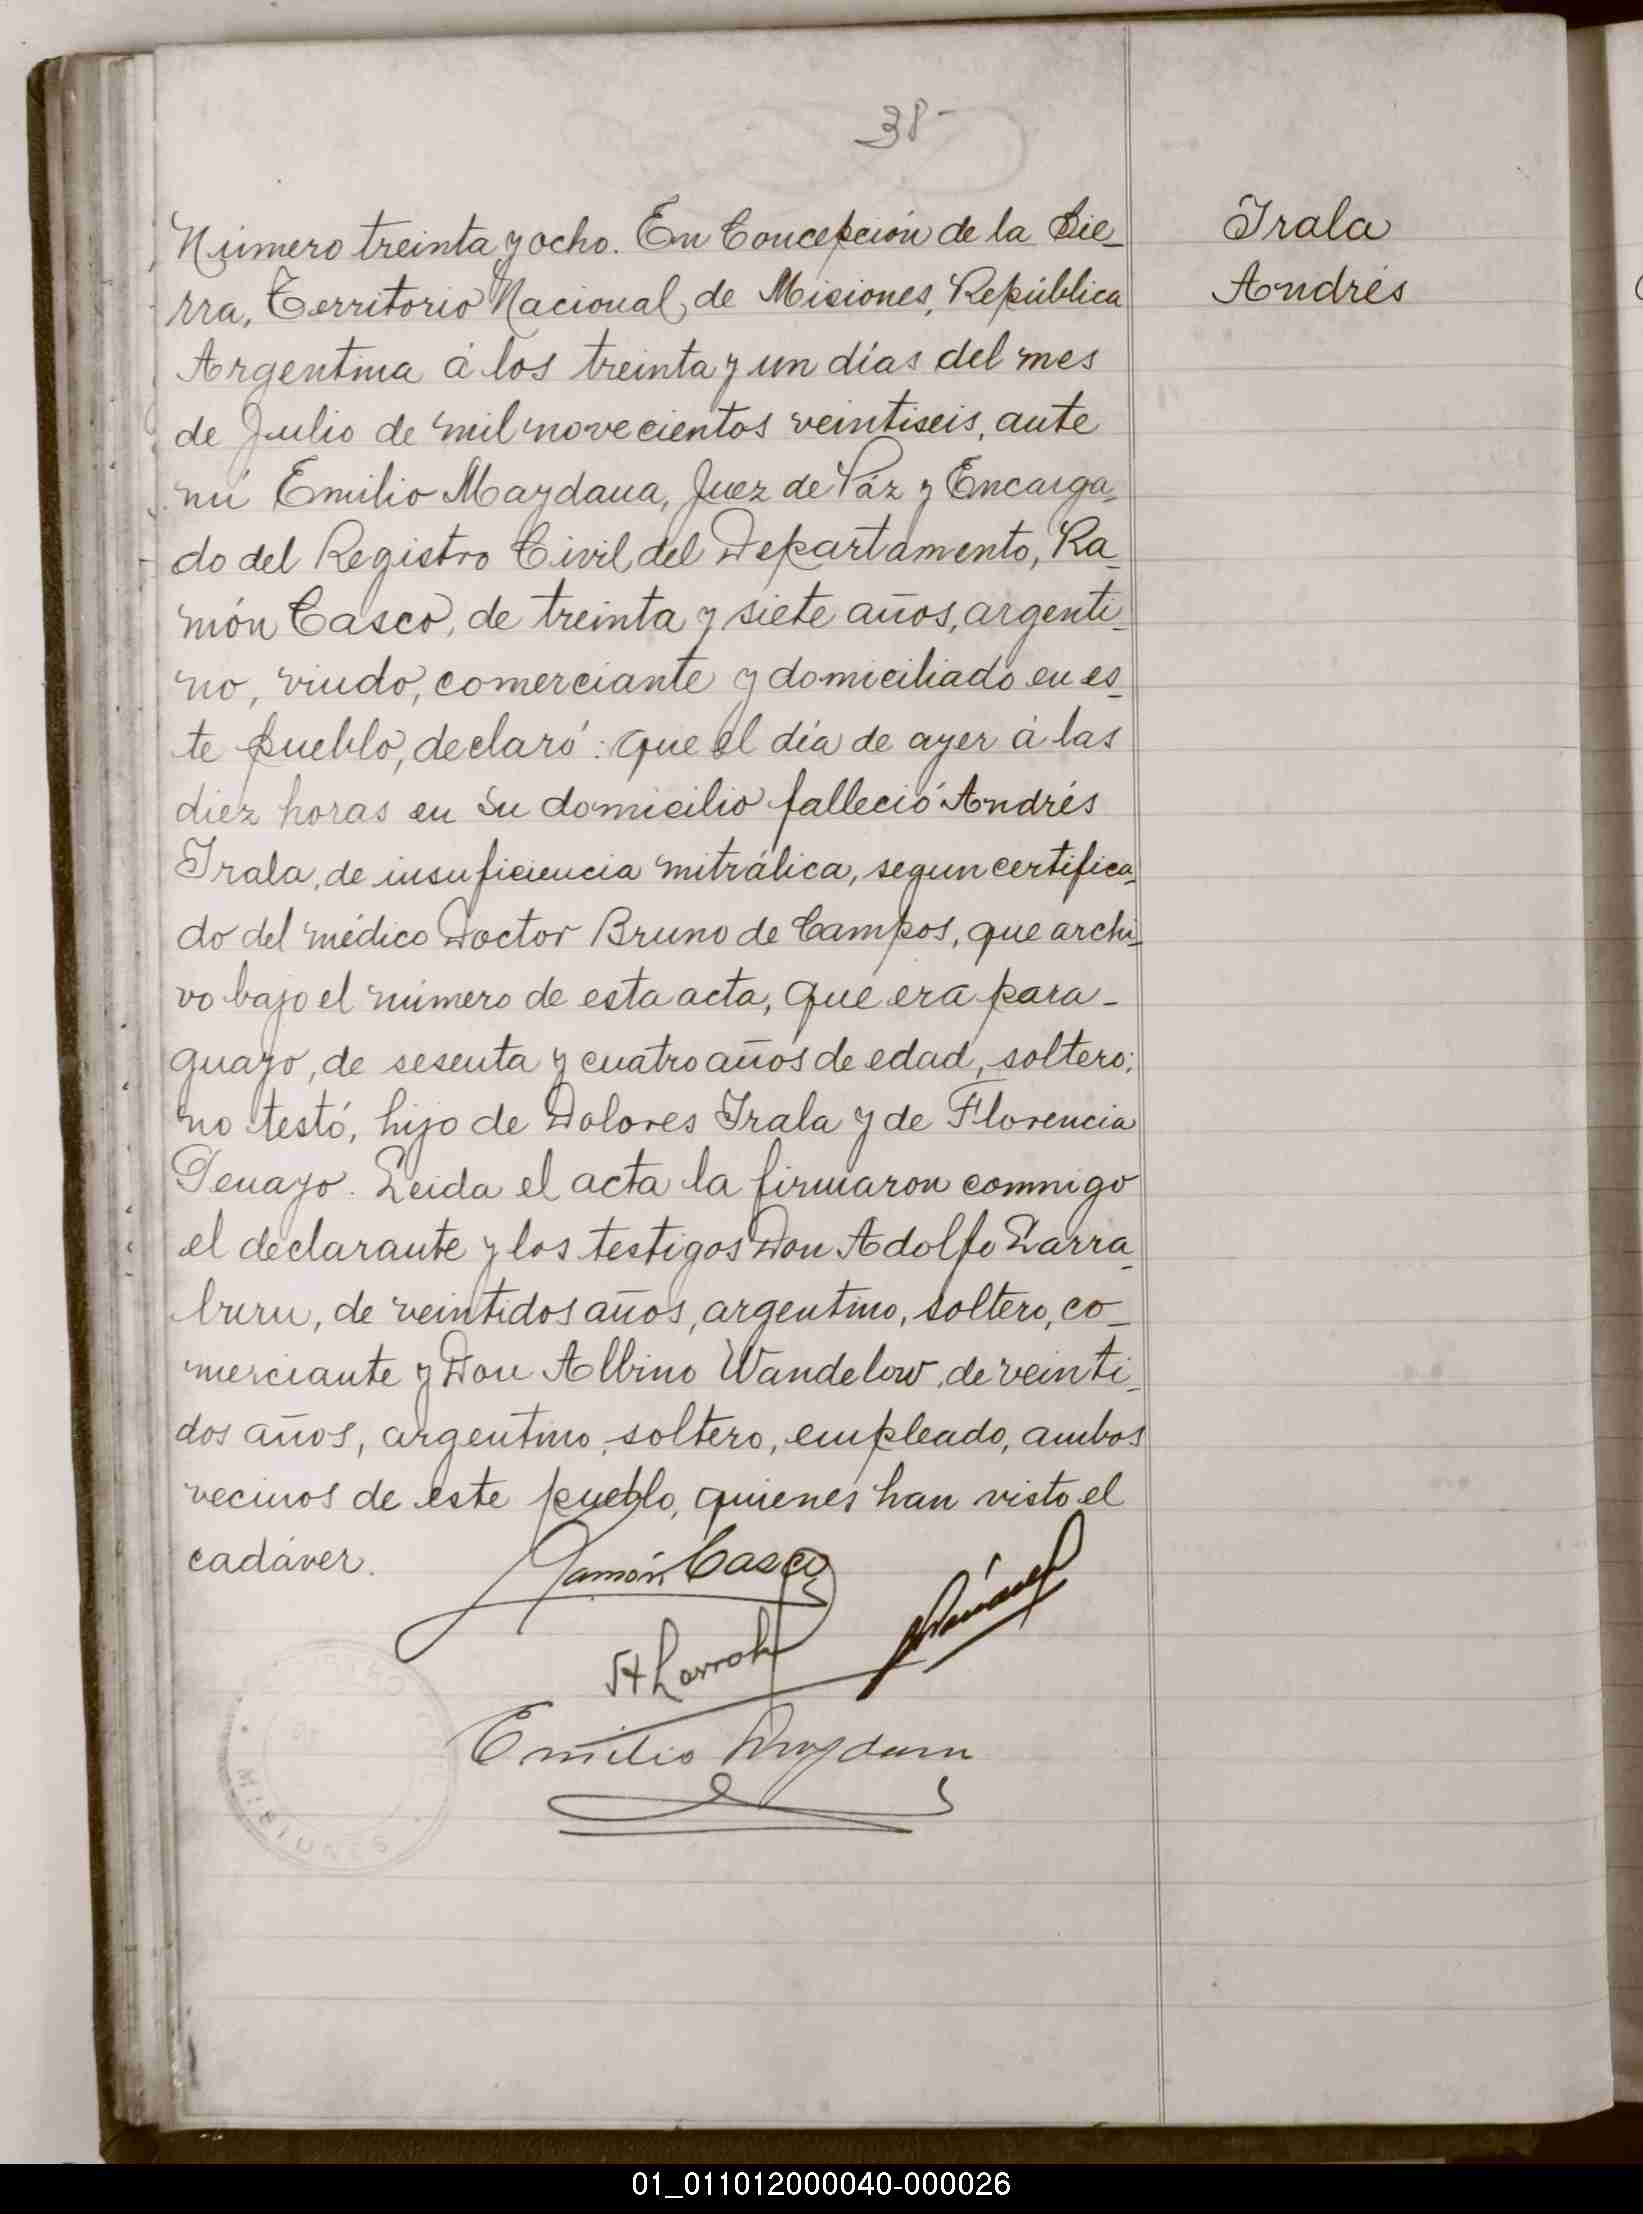 38-
Número treinta y ocho. En Concepción de la Sie-
rra, Territorio Nacional de Misiones, República
Argentina á los treinta y un días del mes
de Julio de mil novecientos veintiseis, ante
mí Emilio Maydana, Juez de Páz y Encarga-
do del Registro Civil del Departamento, Ra-
món Casco, de treinta y siete años, argenti-
no, viudo, comerciante y domiciliado en es-
te pueblo, declaró: que el día de ayer á las
diez horas en su domicilio falleció Andrés
Irala, de insuficiencia mitrálica, segun certifica-
do del médico Doctor Bruno de Campos, que archi-
vo bajo el número de esta acta, que era para-
guayo, de sesenta y cuatro años de edad, soltero;
no testó, hijo de Dolores Irala y de Florencia
Leida el acta la firmaron commigo
el declarante y los testigos Don Adolfo Larra-
buru, de veintidos años, argentino, soltero, co-
merciante y Don Albino Wandelow, de veinti-
dos años, argentino, soltero, empleado, ambos
vecinos de este pueblo, quienes han visto el
cadáver.
Ramón Casco
Emilio Maydana
MISIONES
Irala
Andrés
01_011012000040-000026